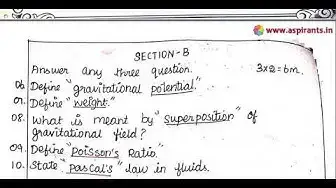 www.aspirants.in
SECTION-B
Answer any three question. 3x2=6m.
06. Define "gravitational potential."
07. Define "weight."
08. What is meant by "superposition" of
gravitational field?
09. Define "Poisson's Ratio."
10. State "pascal's" law in fluids.